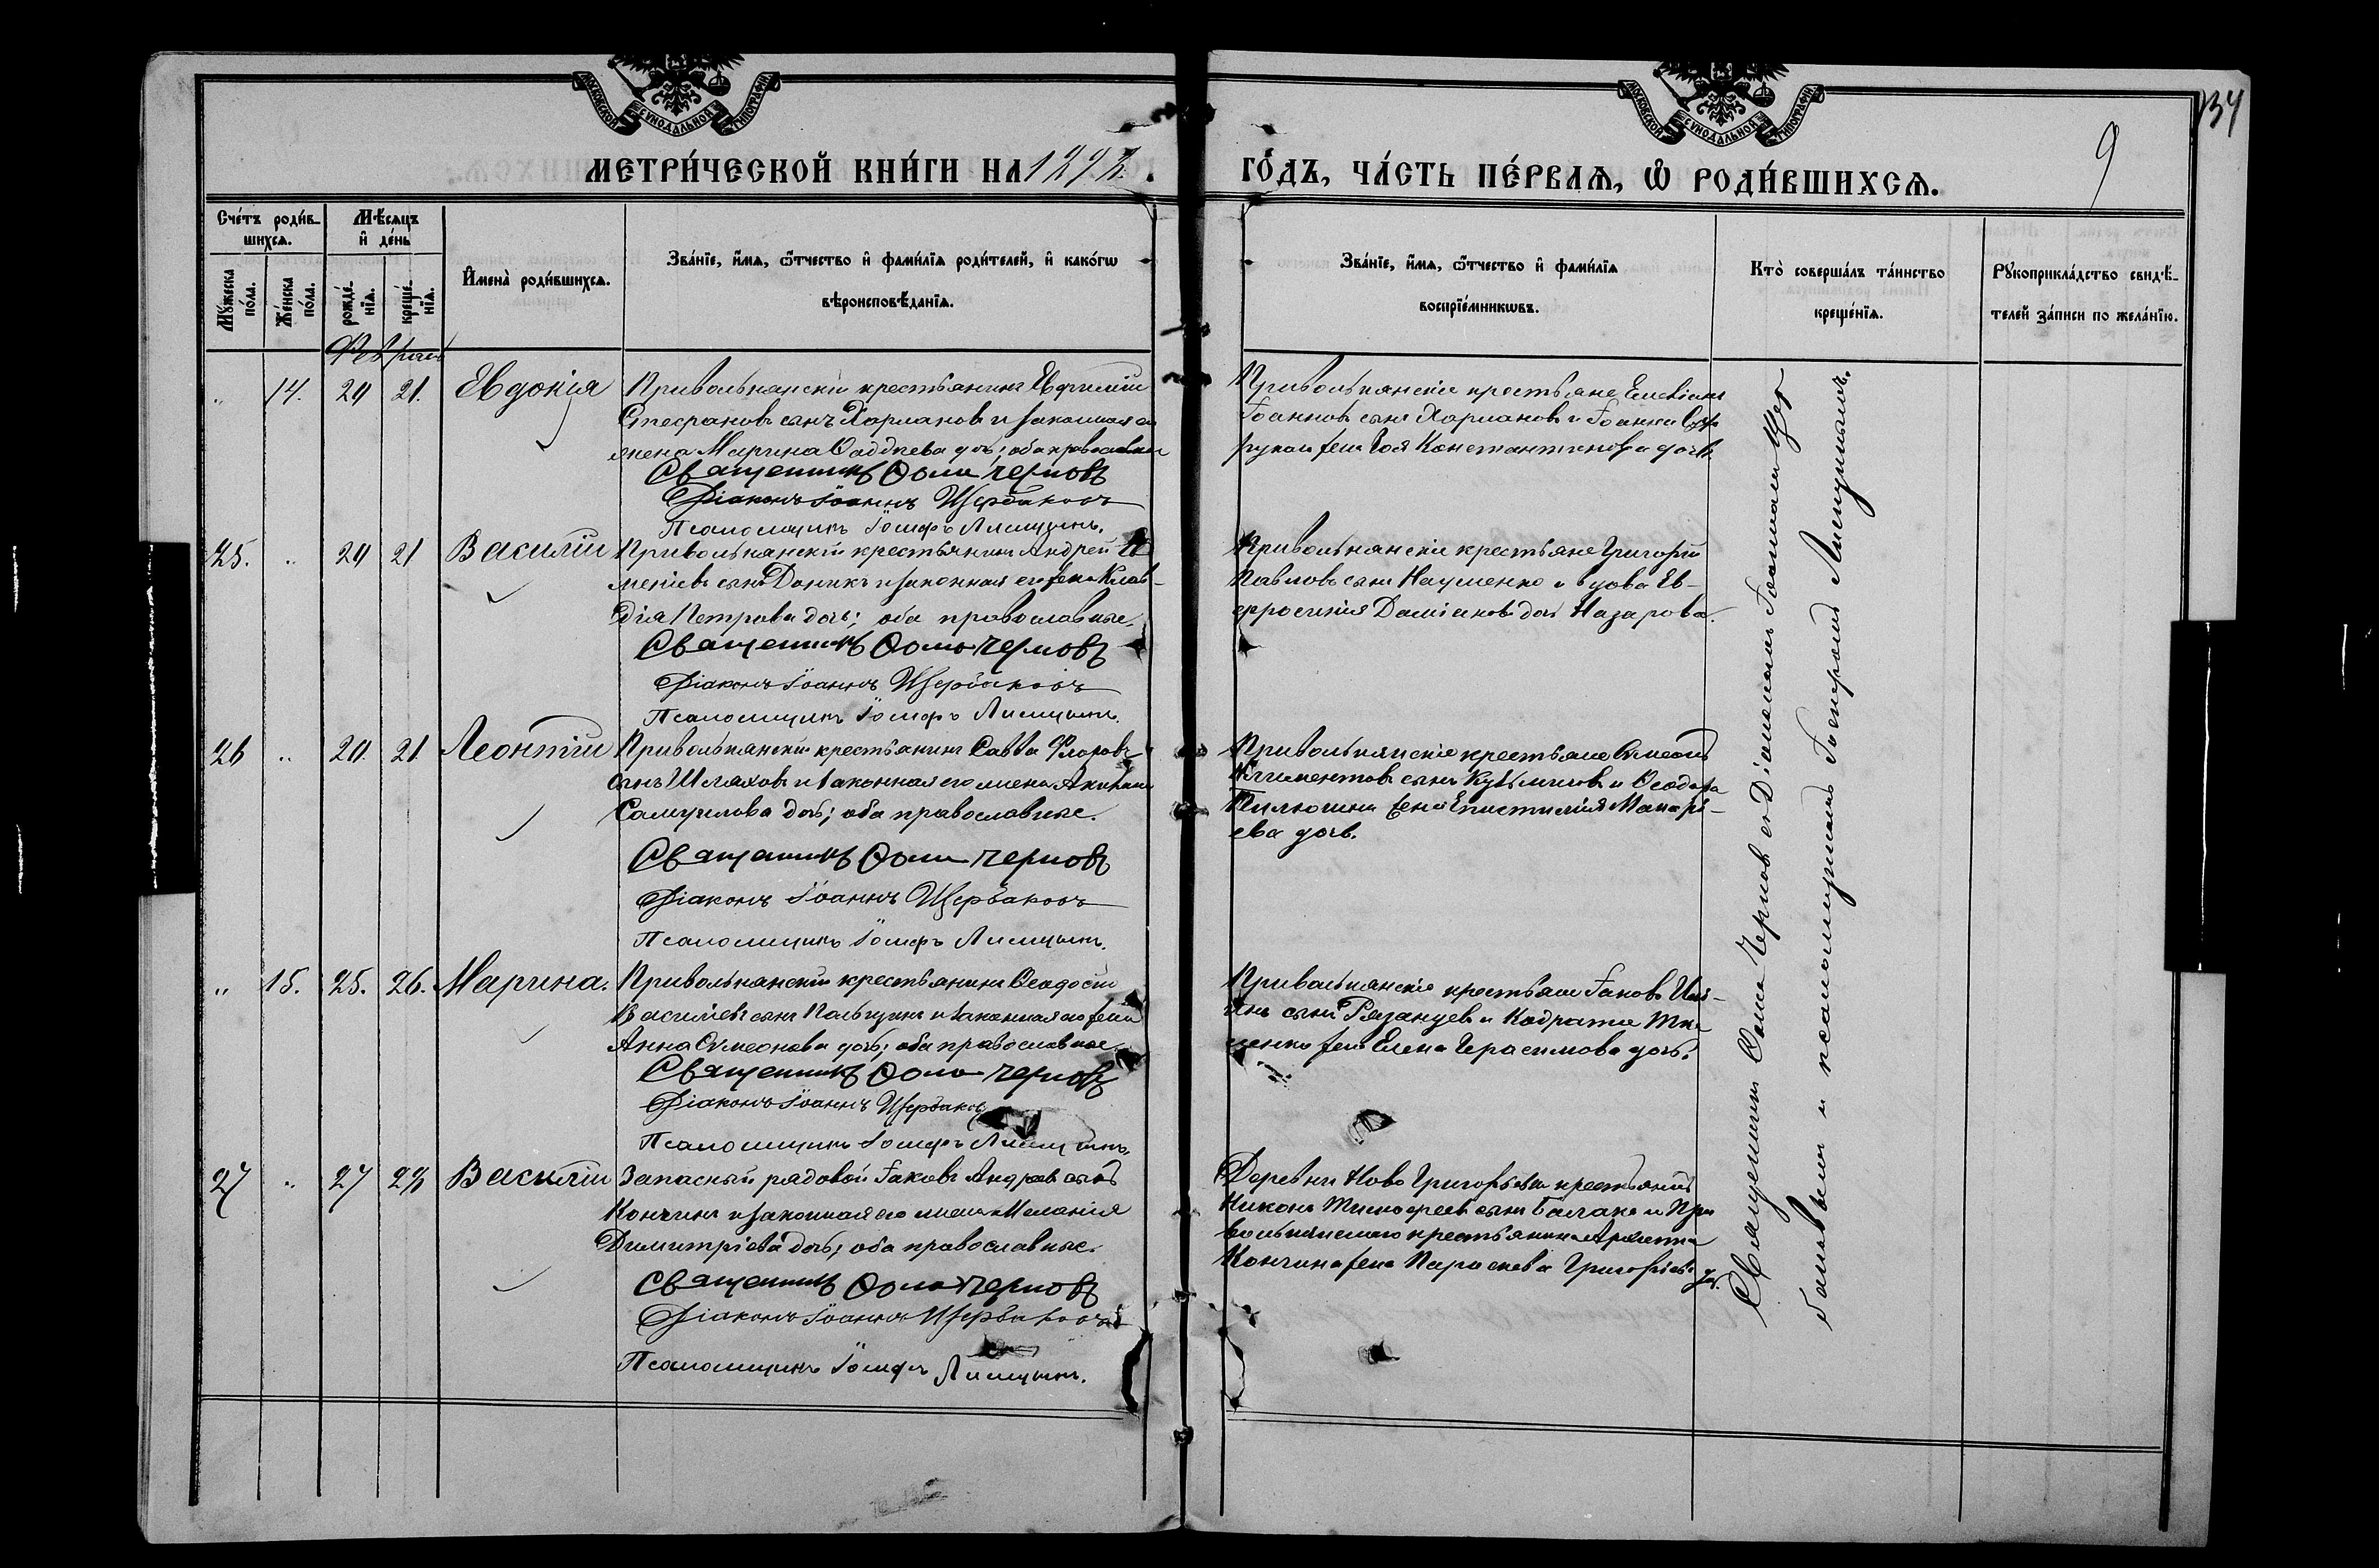 МОСКОВСКОЙ СѴНОДАЛЬНОЙ ТИПОГРАФІИ
МОСКОВСКОЙ СѴНОДАЛЬНОЙ ТИПОГРАФІИ
134
9
МЕТРИ́ЧЕСКОЙ КНИ́ГИ НА
ГО́ДЪ, ЧА́СТЬ ПЕ́РВАѦ, Ѡ РОДИ́ВШИХСѦ.
Сче́тъ роди́в-
шихсѧ.
Мꙋ́жеска по́ла.
Же́нска по́ла.
Мѣ́сѧцъ
и҆ де́нь
рожде́-
нїѧ.
креще́-
нїѧ.
И҆мена̀ роди́вшихсѧ.
Зва́нїе, и҆́мѧ, ѻ҆́тчество и҆ фами́лїѧ роди́телей, и҆ како́гѡ
вѣроисповѣ́данїѧ.
Зва́нїе, и҆́мѧ, ѻ҆́тчество и҆ фами́лїѧ
воспрїе́мникѡвъ.
Кто̀ соверша́лъ та́инство
креще́нїѧ.
Рꙋкоприкла́дство свидѣ́-
телей за́писи по жела́нїю.
Февраль
14. 20 21. Евдокія
Привольнянскій крестьянинъ Евфимій
Стефановъ сынъ Харлановъ и законная его
жена Марина Фаддеева дочь; оба православные
Священникъ Ѳома Черновъ
Діаконъ Іоаннъ Щербаковъ
Псаломщикъ Іосифъ Лисицынъ.
Привольнянскіе крестьяне
Іоанновъ сынъ Харлановъ и Іоанна
жена Зоя Константинова дочь.
25. 20 21 Василій
Привольнянскій крестьянинъ Андрей
сынъ Доникъ и законная его жена Клав-
дія Петрова дочь; оба православные.
Священникъ Ѳома Черновъ
Діаконъ Іоаннъ Щербаковъ
Псаломщикъ Іосифъ Лисицынъ.
Привольнянскіе крестьяне Григорій
Павловъ сынъ Науменко и вдова Ев-
фросинія Даміанова дочь Назарова.
26 20. 21. Леонтій
Привольнянскій крестьянинъ Савва Флоровъ
сынъ Шляховъ и законная его жена
Самуилова дочь; оба православные.
Священникъ Ѳома Черновъ
Діаконъ Іоаннъ Щербаковъ
Псаломщикъ Іосифъ Лисицынъ.
Привольнянскіе крестьяне Симеонъ
Климентовъ сынъ Кузьминовъ и Ѳеодора
жена Епистимія Макарі-
ева дочь.
15. 25. 26. Марина.
Привольнянскій крестьянинъ Ѳеодосій
Василіевъ сынъ и законная его жена
Анна Симеонова дочь; оба православные.
Священникъ Ѳома Черновъ
Діаконъ Іоаннъ Щербаковъ
Псаломщикъ Іосифъ Лисицынъ.
Привольнянскіе крестьяне Іаковъ
сынъ Рязанцевъ и Кодрата
жена Елена Герасимова дочь.
27 27 28 Василій
Запасный рядовой Іаковъ Андреевъ сынъ
Кончинъ и законная его жена Меланія
Димитріева дочь; оба православные.
Священникъ Ѳома Черновъ
Діаконъ Іоаннъ Щербаковъ
Псаломщикъ Іосифъ Лисицынъ.
Деревни Ново Григорьевки крестьянинъ
Никонъ Тимофеевъ сынъ Балака и При
вольнянскаго крестьянина
Кончина жена Параскева Григорьева дочь.
Священникъ Ѳома Черновъ съ Діакономъ Іоанномъ Щер
баковымъ и псаломщикомъ Іосифомъ Лисицынымъ.